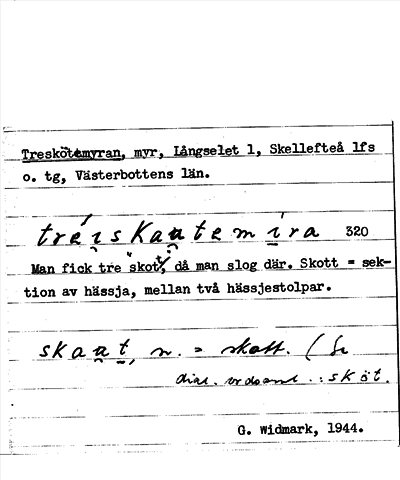 Treskötemyran, myr, Långselet 1, Skellefteå lfs
o. tg, Västerbottens län.
tréiskaatemíra 320
Man fick tre "skot", då man slog där. Skott = sek-
tion av hässja, mellan två hässjestolpar.
skaat, n. = skott. (Se
dial. ordsaml.: sköt.
G. Widmark, 1944.